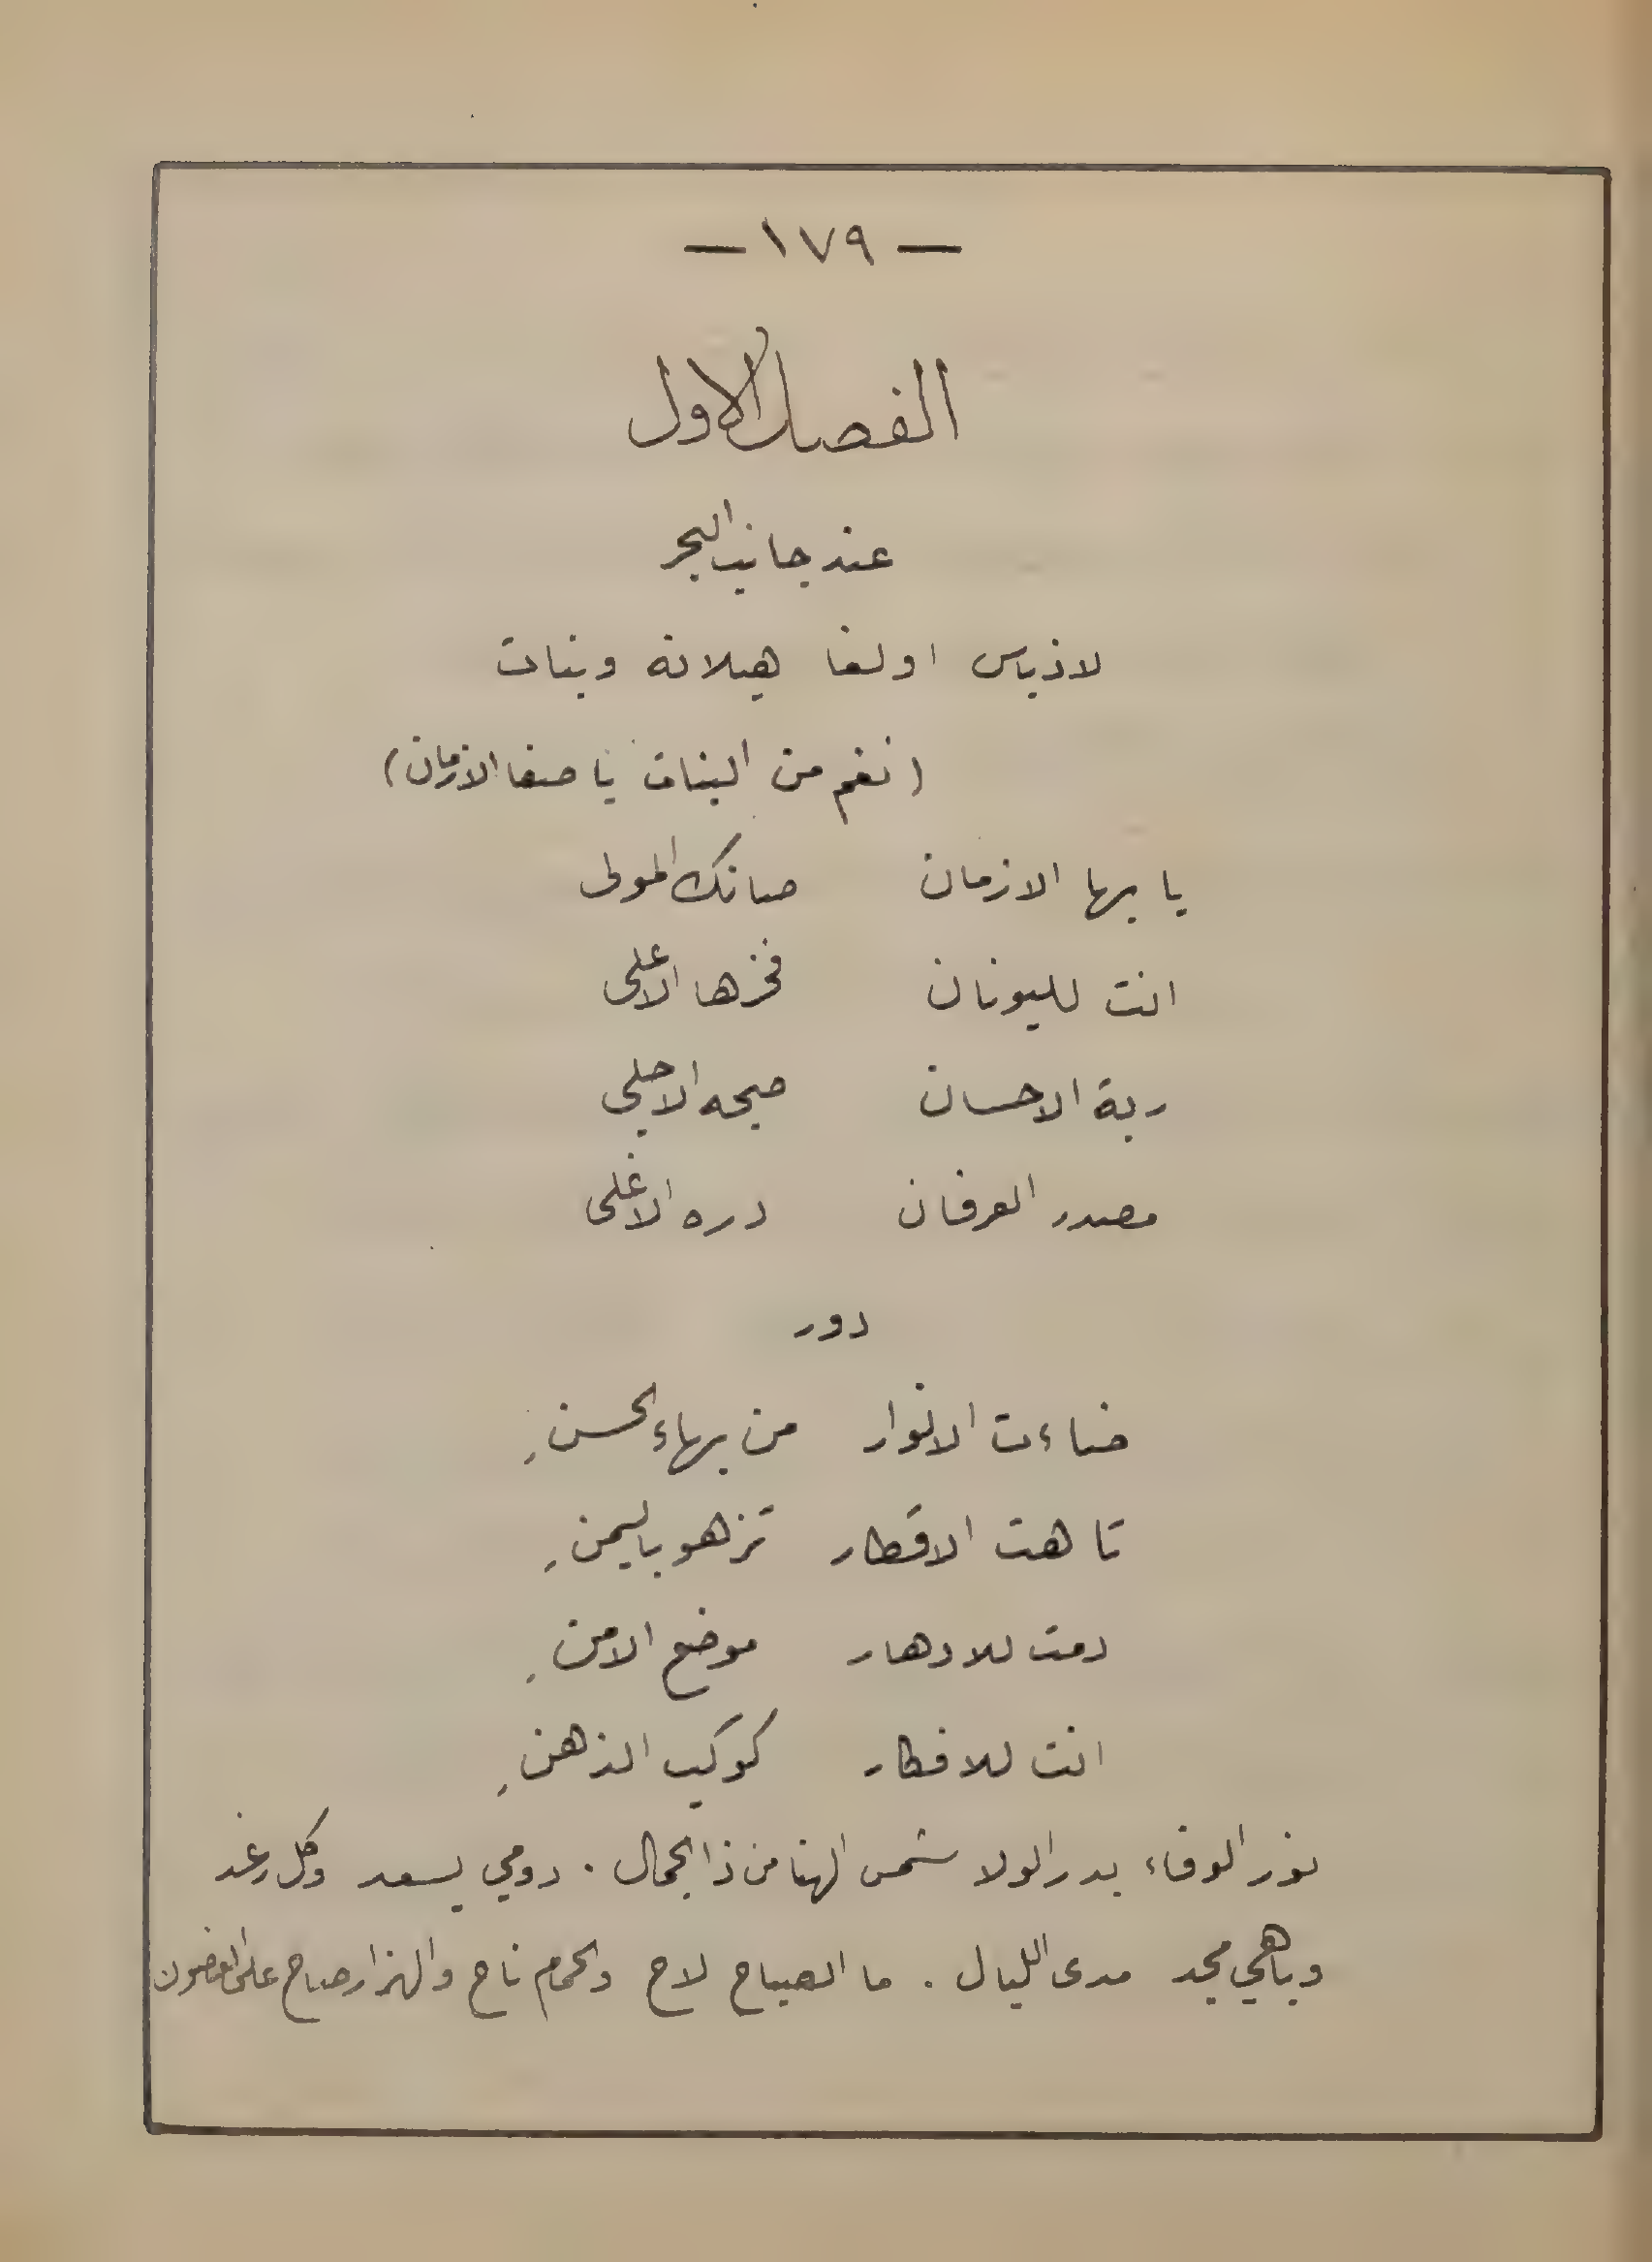 — ١٧٩ —
الفصل الاول
عند جانب البحر
لاذياس اولغا هيلانة وبنات
(نغم من البنات يا صفا الازمان)
يا بها الازمان صانك المولى
انت لليونان فخرها الاعلى
ربة الاحسان صبحه الاجلى
مصدر العرفان دره الاغلى
دور
ضاءت الانوار من بهاء الحسنِ
تاهت الاقطار تزهو باليمنِ
دمت للادهار موضع الامنِ
انت للافكار كوكب الذهنِ
نور الوفاء بدر الولا شمس الهنا من ذا الجمال . دومي بسعد وكل رغد
وباهي مجد مدى الليال . ما الصباح لاح والحمام ناح والهزار صاح على الغصون